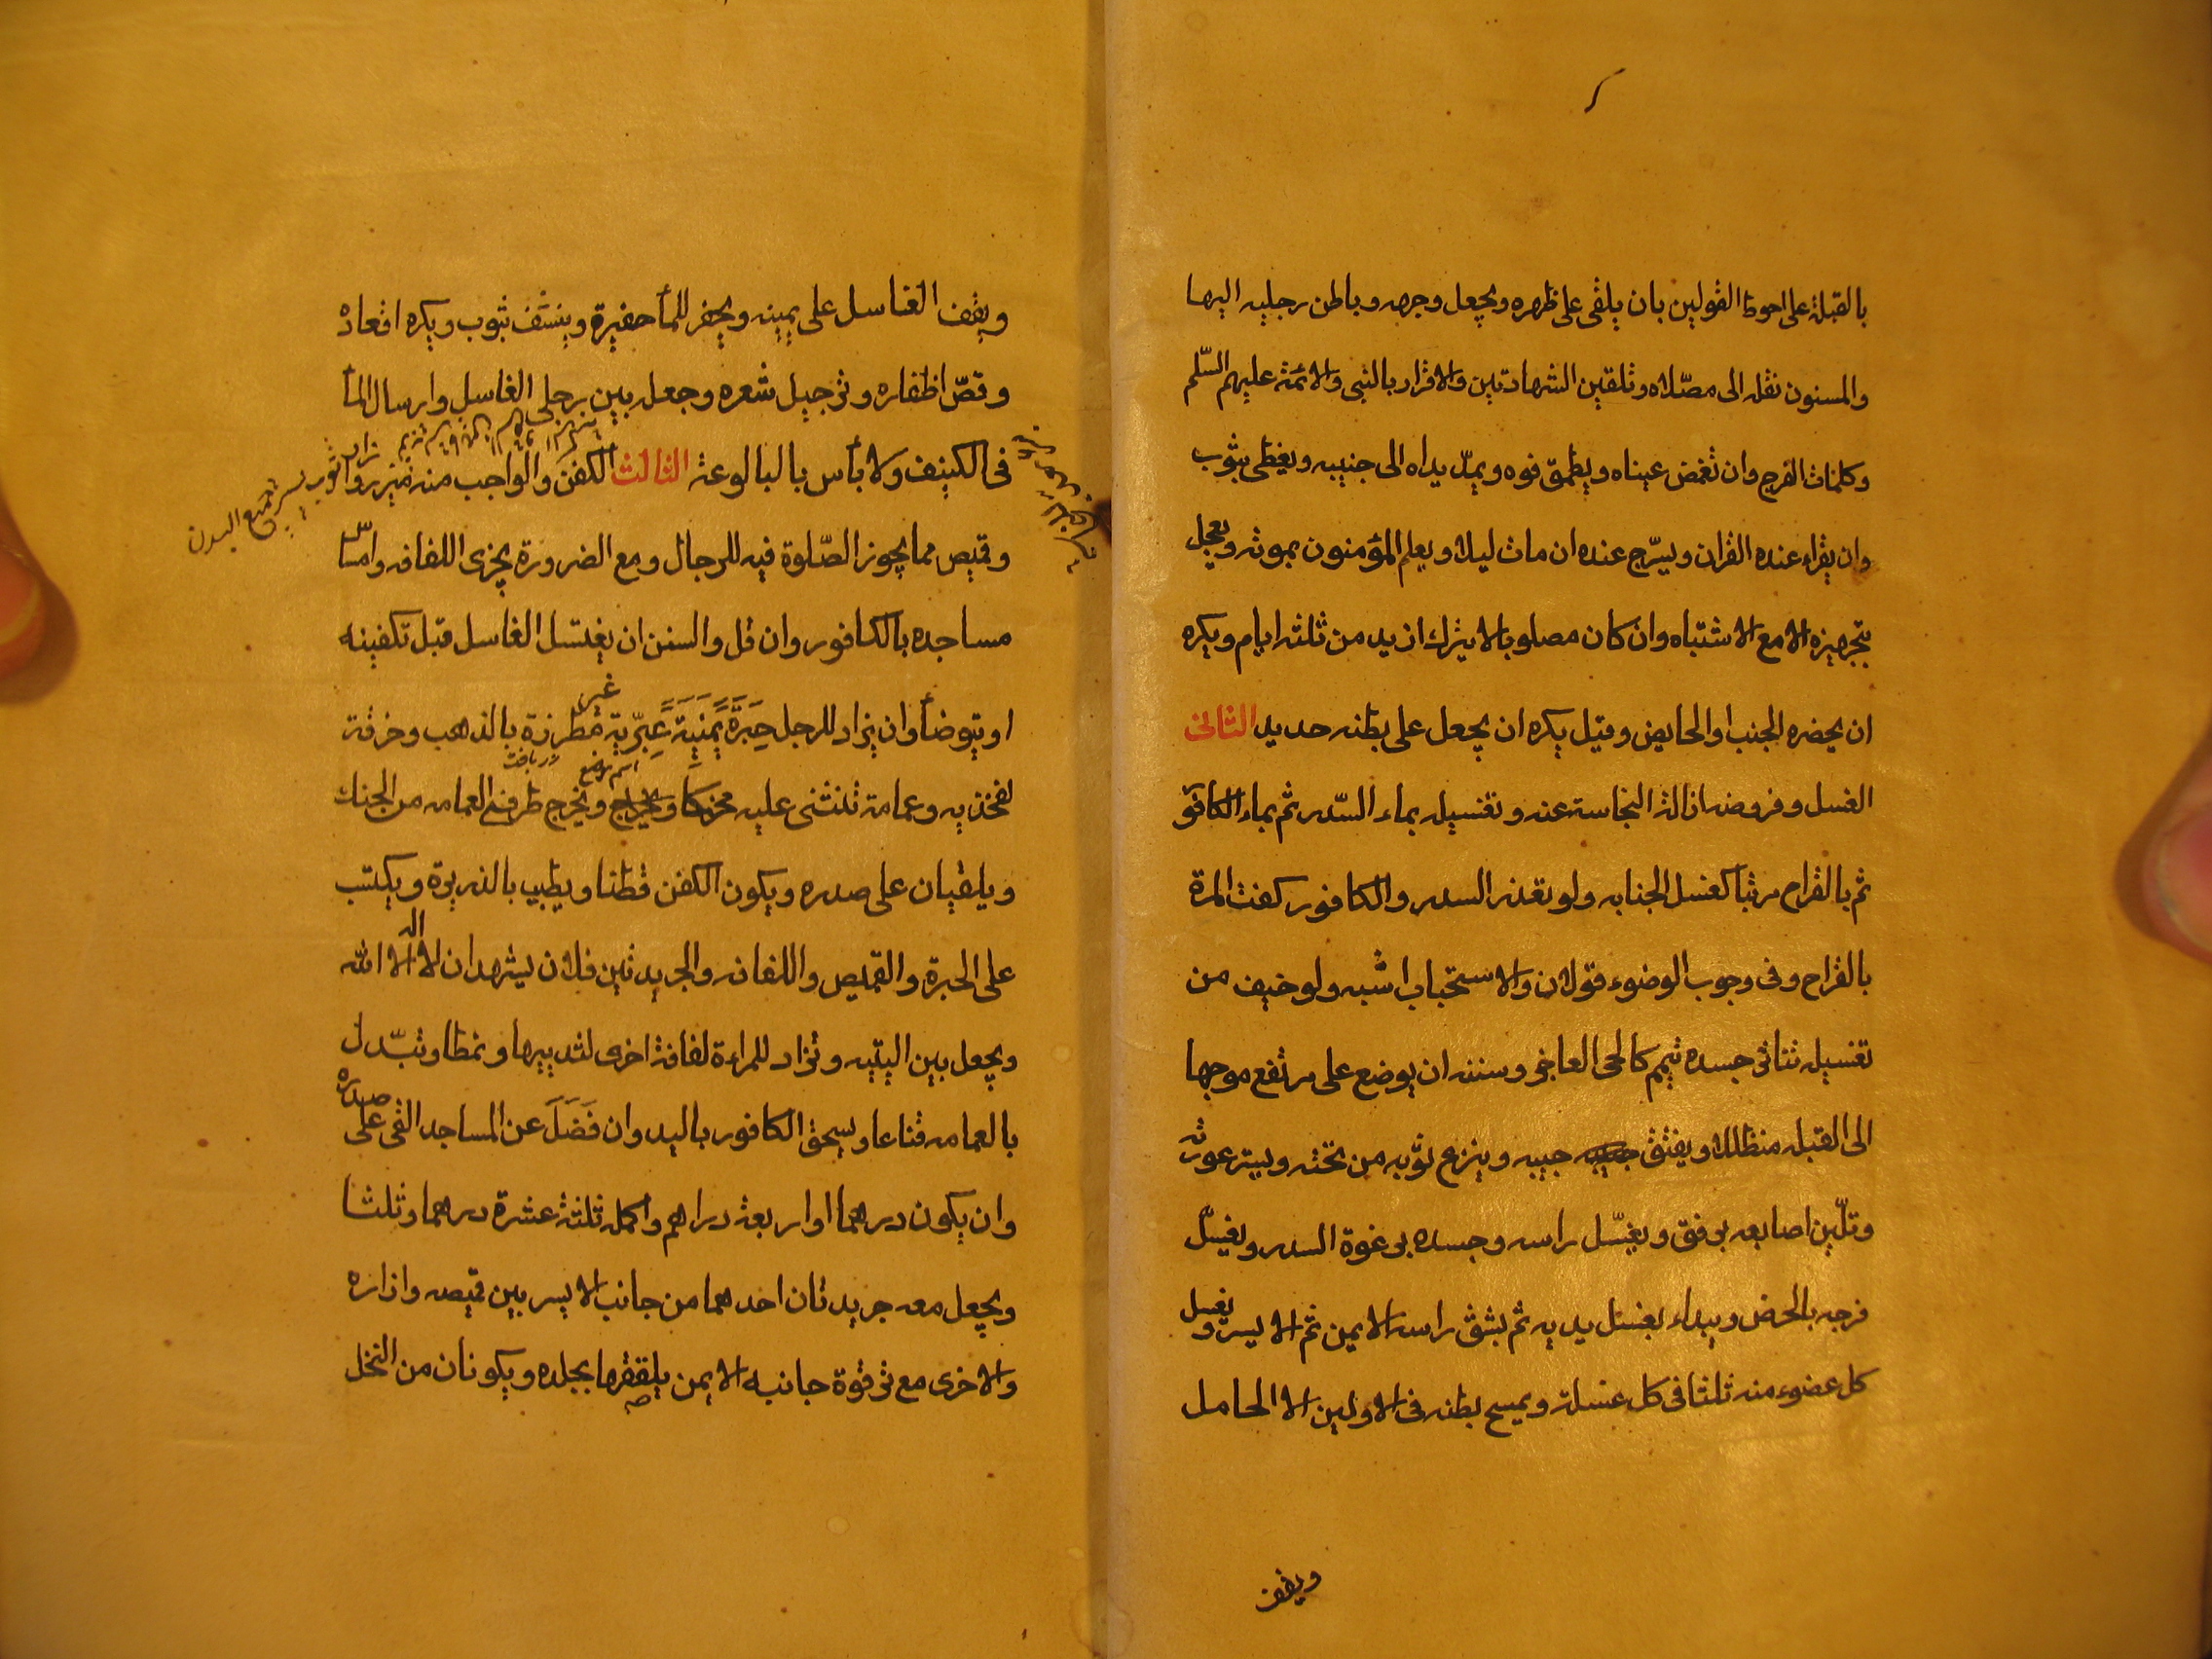 بالقبلة على احوط القولين بان يلقى على ظهره ويجعل وجهه وباطن رجليه اليها
والمسنون نقله الى مصلاه وتلقين الشهادتين والاقرار بالنبى والائمة عليهم السّلم
وكلمات الفرج وان تغمض عيناه ويطبق فوه ويمدّ يداه الى جنبيه ويغطى بثوب
وان يقراء عنده القران ويسرّج عنده ان مات ليلا ويعلم المؤمنون بموته ويعجل
تجهيزه الا مع الاشتباه وان كان مصلوبا لا يترك ازيد من ثلثة ايام ويكره
ان يحضره الجنب او الحايض وقيل يكره ان يجعل على بطنه حديد الثانى
الغسل وفروضه ازالة النجاسة عنه وتغسيله بماء السّدر ثم بماء الكافور
ثم بالقراح مرتبا كغسل الجنابه ولو تعذر السدر والكافور كفت المرة
بالقراح وفى وجوب الوضوء قولان والاستحباب اشبه ولو خيف من
تغسيله تناثر جسده تيمم كالحى العاجز وسننه ان يوضع على مرتفع موجها
الى القبله مظللا ويفتق جيبه وينزع ثوبه من تحته ويستر عورته
وتلّين اصابعه برفق ويغسّل راسه وجسده برغوة السدر ويغسل
فرجه بالحرض ويبداء بغسل يديه ثم بشق راسه الايمن ثم الايسر ويغسل
كل عضو منه ثلثا فى كل غسلة ويمسح بطنه فى الاولين الا الحامل
ويقف
ويقف الغاسل على يمينه ويحفر للمأ حفيرة وينشف بثوب ويكره اقعاده
وقصّ اظفاره وترجيل شعره وجعله بين رجلى الغاسل وارسال المأ
فى الكنيف ولا بأس بالبالوعة الثالث الكفن والواجب منه ميزر
وازار ثوب يستر جميع البدن
وقميص مما يجوز الصّلوة فيه للرجال ومع الضرورة يجزى اللفافه وامساس
مساجده بالكافور وان قل والسنن ان يغتسل الغاسل قبل تكفينه
او يتوضأ وان يزاد للرجل حِبَرَةً يَمَنِيَةً عِبرّية غير مطرزة بالذهب وخرقة
اسم موضع
لفخذيه وعمامة تثنى عليه محنكا ويخرج طرفى العمامه من الحنك
ويلقيان على صدره ويكون الكفن قطنا ويطيب بالذريرة ويكتب
على الحبرة والقميص واللفافه والجريدتين فلان يشهد ان لا اله الا الله
ويجعل بين اليتيه وتزاد للمراءة لفافة اخرى لثدييها ونمطا وتبّدل
بالعمامه قناعا ويسحق الكافور باليد وان فَضَلَ عن المساجد القى على صدره
وان يكون درهما او اربعة دراهم واكمله ثلثة عشرة درهما وثلثا
ويجعل معه جريدتان احدهما من جانب الايسر بين قميصه وازاره
والاخرى مع ترقوة جانبه الايمن يلصقها بجلده ويكونان من النخل